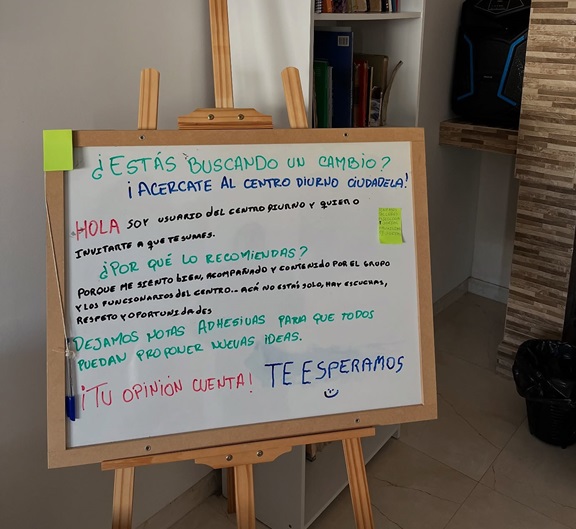 ¿ESTÁS BUSCANDO UN CAMBIO?
¡ACERCATE AL CENTRO DIURNO CIUDADELA!
HOLA SOY USUARIO DEL CENTRO DIURNO Y QUIERO
INVITARTE A QUE TE SUMES.
¿POR QUÉ LO RECOMIENDAS?
PORQUE ME SIENTO BIEN, ACOMPAÑADO Y CONTENIDO POR EL GRUPO
Y LOS FUNCIONARIOS DEL CENTRO... ACÁ NO ESTÁS SOLO, HAY ESCUCHAS,
RESPETO Y OPORTUNIDADES
DEJAMOS NOTAS ADHESIVAS PARA QUE TODOS
PUEDAN PROPONER NUEVAS IDEAS.
¡TU OPINIÓN CUENTA! TE ESPERAMOS